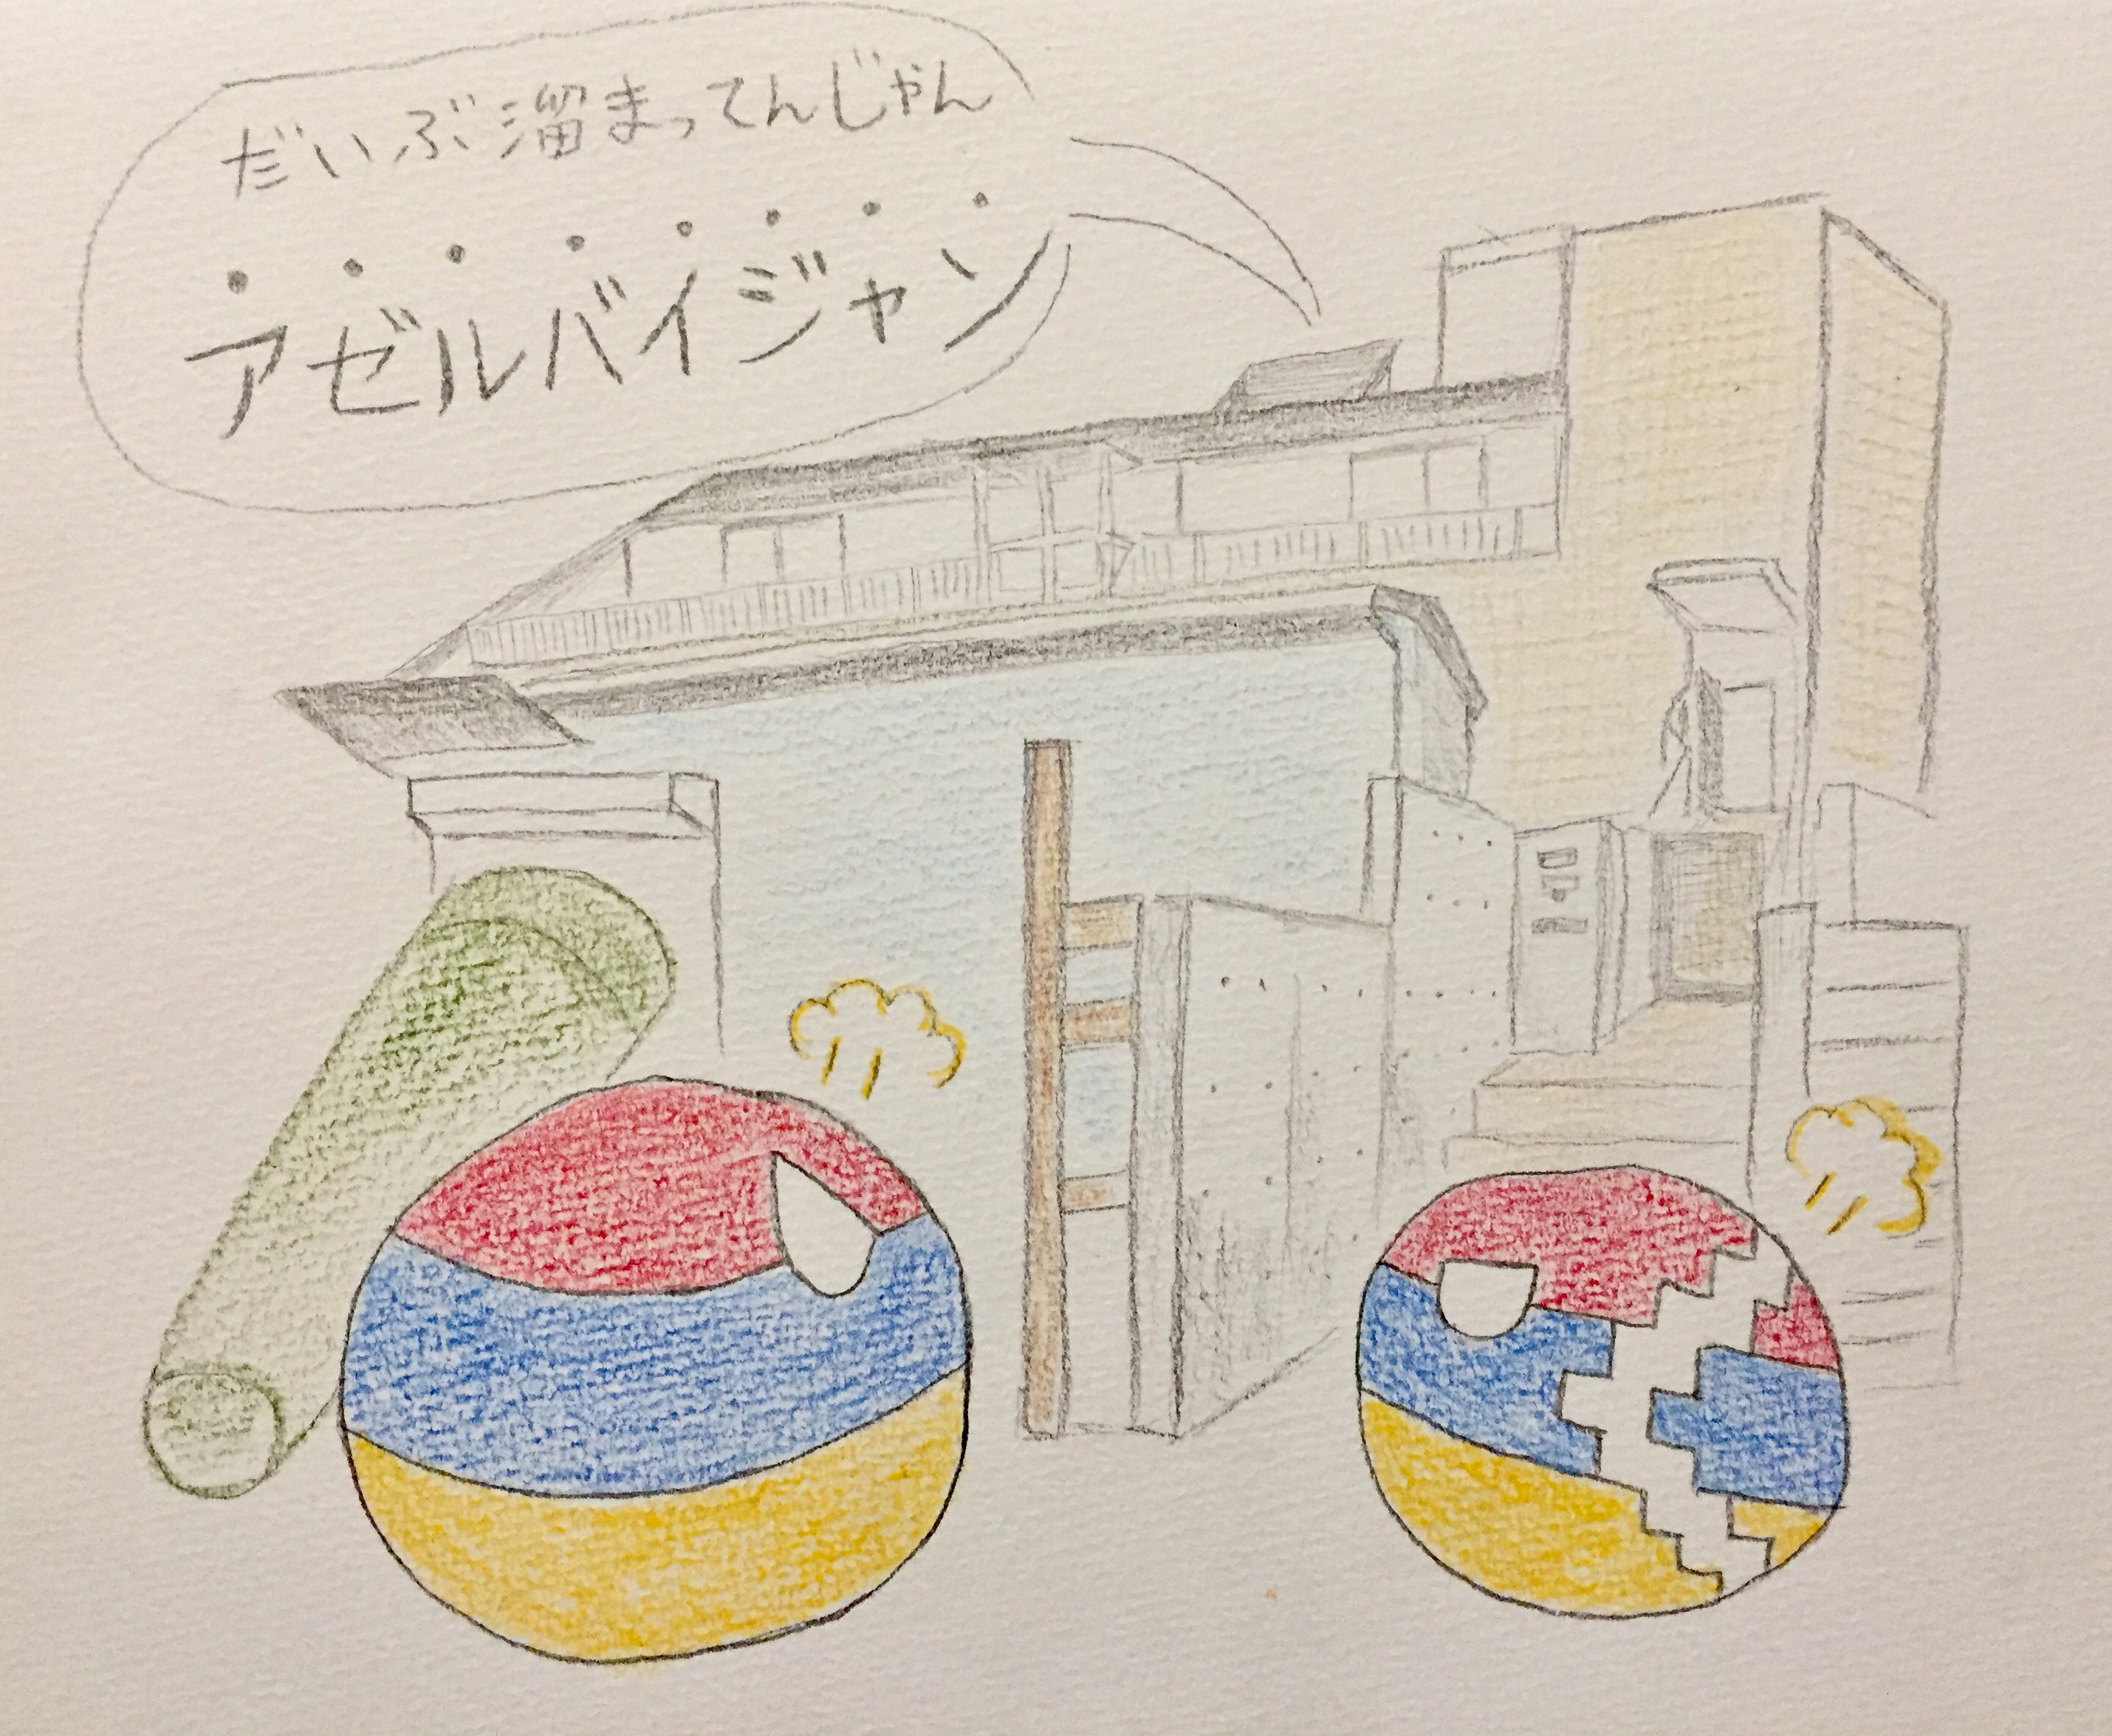 だいぶ溜まってんじゃん
アゼルバイジャン